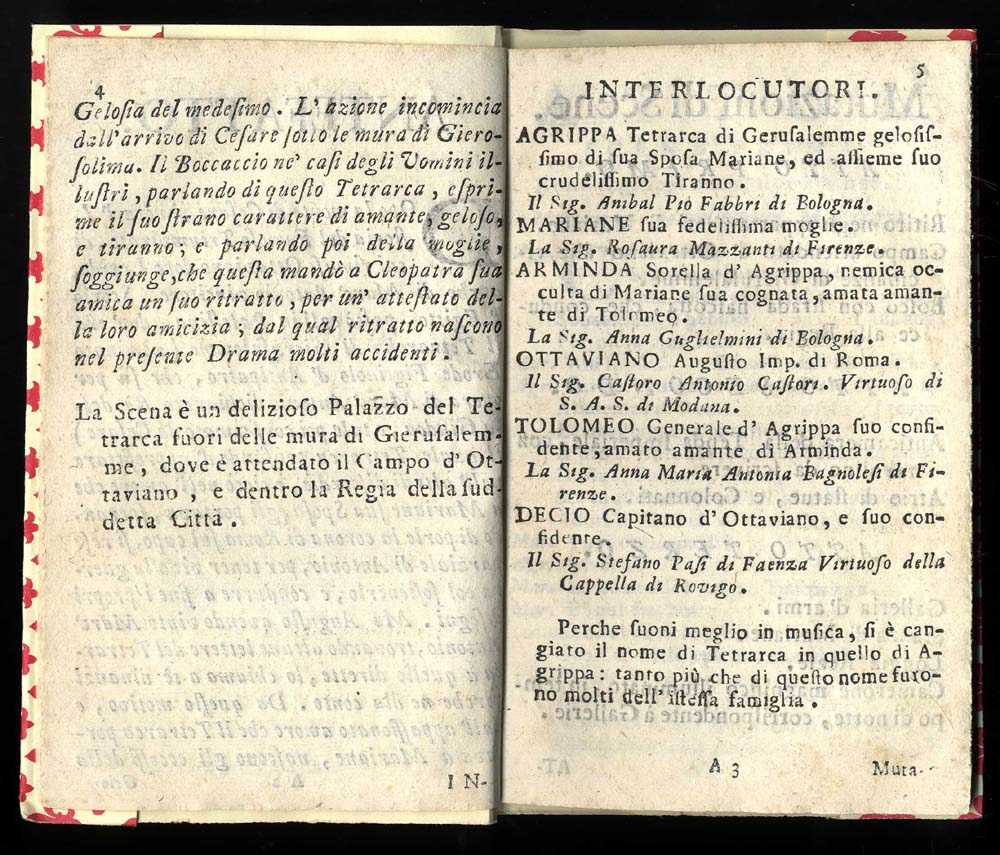 4
Geloſia del medeſimo. L' azione incomincia
dall' arrivo di Ceſare ſotto le mura di Giero-
ſolima. Il Boccaccio ne' caſi degli Uomini il-
luſtri, parlando di queſto Tetrarca, eſpri-
me il ſuo ſtrano carattere di amante, geloſo,
e tiranno; e parlando poi della moglie,
ſoggiunge, che queſta mandò a Cleopatra ſua
amica un ſuo ritratto, per un' atteſtato del-
la loro amicizia; dal qual ritratto naſcono
nel preſente Drama molti accidenti.
La Scena è un delizioſo Palazzo del Te-
trarca fuori delle mura di Gieruſalem-
me, dove è attendato il Campo d' Ot-
taviano, e dentro la Regia della ſud-
detta Città.
IN-
5
INTERLOCUTORI.
AGRIPPA Tetrarca di Geruſalemme geloſiſ-
ſimo di ſua Spoſa Mariane, ed aſſieme ſuo
crudeliſſimo Tiranno.
Il Sig. Anibal Piò Fabbri di Bologna.
MARIANE ſua fedeliſſima moglie.
La Sig. Roſaura Mazzanti di Firenze.
ARMINDA Sorella d' Agrippa, nemica oc-
culta di Mariane ſua cognata, amata aman-
te di Tolomeo.
La Sig. Anna Guglielmini di Bologna.
OTTAVIANO Auguſto Imp. di Roma.
Il Sig. Caſtoro Antonio Caſtori. Virtuoſo di
S. A. S. di Modana.
TOLOMEO Generale d' Agrippa ſuo confi-
dente, amato amante di Arminda.
La Sig. Anna Maria Antonia Bagnoleſi di Fi-
renze.
DECIO Capitano d' Ottaviano, e ſuo con-
fidente.
Il Sig. Stefano Paſi di Faenza Virtuoſo della
Cappella di Rovigo.
Perche ſuoni meglio in muſica, ſi è can-
giato il nome di Tetrarca in quello di A-
grippa: tanto più, che di queſto nome furo-
no molti dell' iſteſſa famiglia.
A 3
Muta-